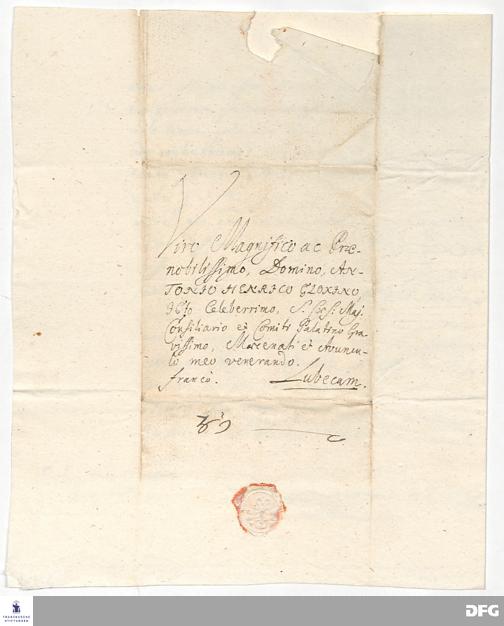 Viro Magnifico ac Præ-
nobilissimo, Domino, AN-
TONIO HENRICO GLOXINO,
JCto Celeberrimo, S. Cæs. Maj.
Consiliario et Comiti Palatino Gra-
vissimo, Mæcenati et Avuncu-
lo meo venerando.
franco. Lubecam.
FRANCKESCHE
STIFTUNGEN
DFG